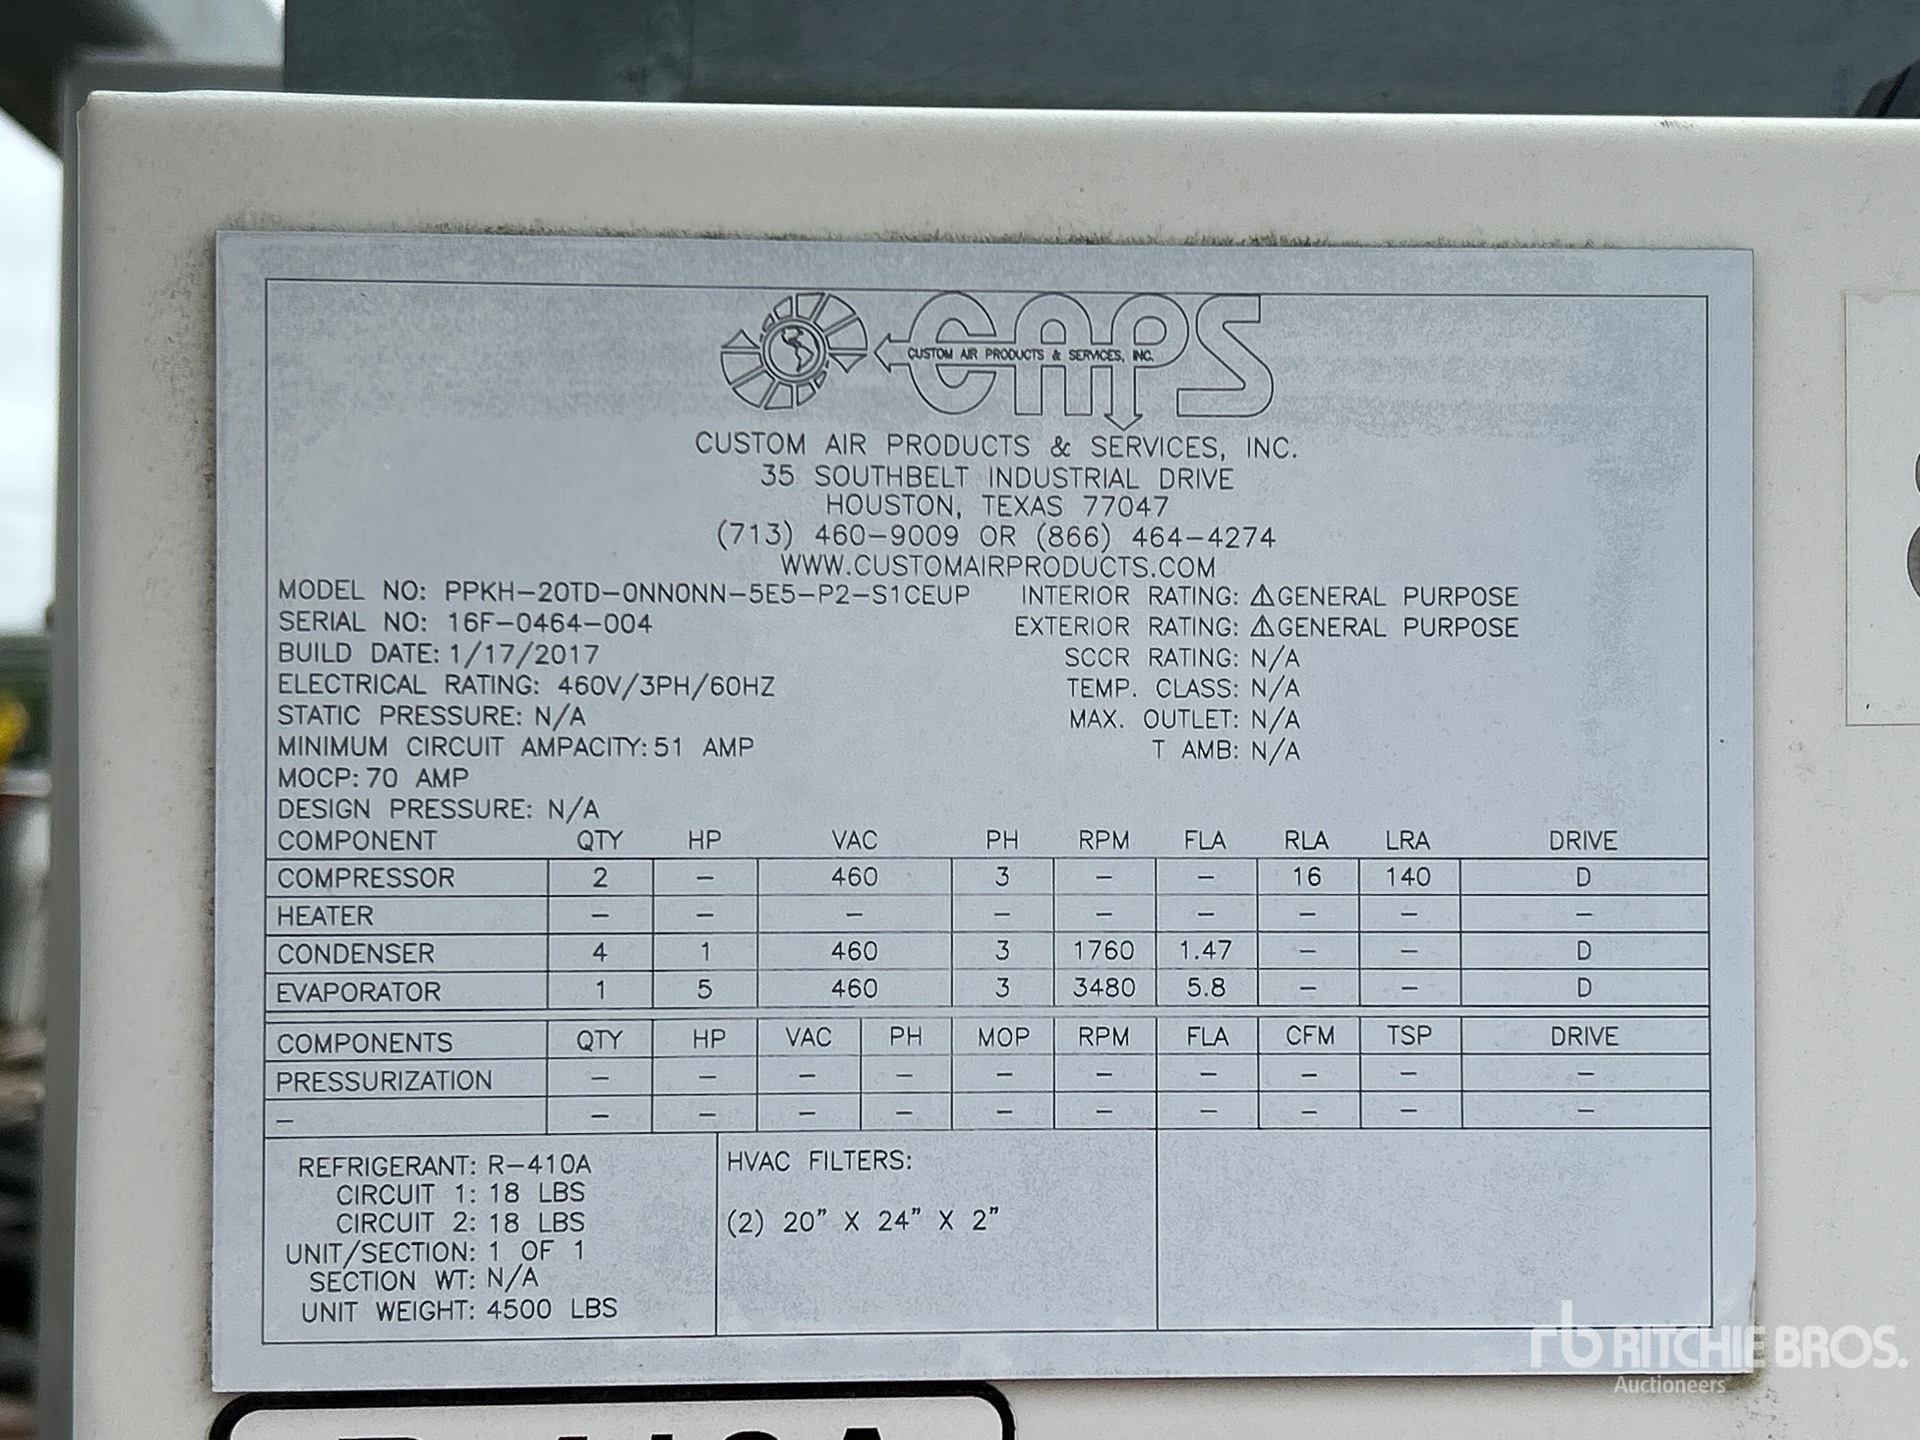 CAPS
CUSTOM AIR PRODUCTS & SERVICES, INC.
CUSTOM AIR PRODUCTS & SERVICES, INC.
35 SOUTHBELT INDUSTRIAL DRIVE
HOUSTON, TEXAS 77047
(713) 460-9009 OR (866) 464-4274
WWW.CUSTOMAIRPRODUCTS.COM
MODEL NO: PPKH-20TD-0NN0NN-5E5-P2-S1CEUP INTERIOR RATING: ⚠GENERAL PURPOSE
SERIAL NO: 16F-0464-004 EXTERIOR RATING: ⚠GENERAL PURPOSE
BUILD DATE: 1/17/2017 SCCR RATING: N/A
ELECTRICAL RATING: 460V/3PH/60HZ TEMP. CLASS: N/A
STATIC PRESSURE: N/A MAX. OUTLET: N/A
MINIMUM CIRCUIT AMPACITY: 51 AMP T AMB: N/A
MOCP: 70 AMP
DESIGN PRESSURE: N/A
COMPONENT QTY HP VAC PH RPM FLA RLA LRA DRIVE
COMPRESSOR 2 - 460 3 - - 16 140 D
HEATER - - - - - - - - -
CONDENSER 4 1 460 3 1760 1.47 - - D
EVAPORATOR 1 5 460 3 3480 5.8 - - D
COMPONENTS QTY HP VAC PH MOP RPM FLA CFM TSP DRIVE
PRESSURIZATION - - - - - - - - - -
- - - - - - - - - - -
REFRIGERANT: R-410A HVAC FILTERS:
CIRCUIT 1: 18 LBS
CIRCUIT 2: 18 LBS (2) 20" X 24" X 2"
UNIT/SECTION: 1 OF 1
SECTION WT: N/A
UNIT WEIGHT: 4500 LBS
rb RITCHIE BROS.
Auctioneers